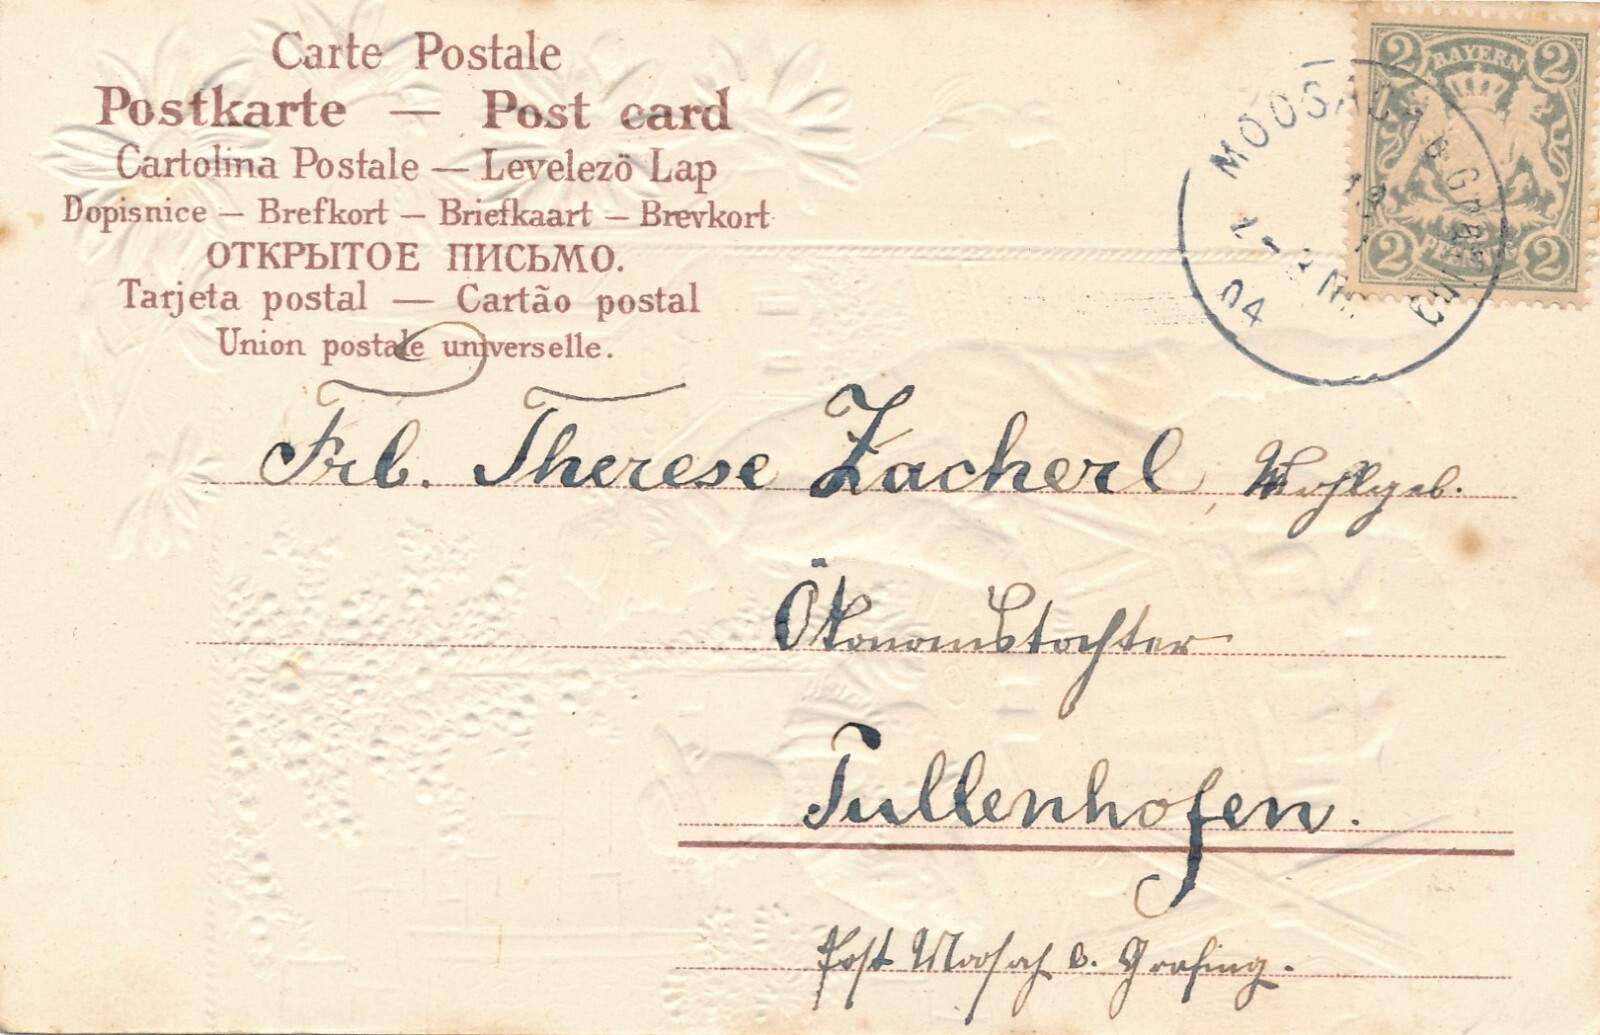 Carte Postale
Postkarte — Post card
Cartolina Postale — Levelezö Lap
Dopisnice — Brefkort — Briefkaart — Brevkort
ОТКРЫТОЕ ПИСЬМО.
Tarjeta postal — Cartão postal
Union postale universelle.
2 BAYERN 2
2 PFENNIG 2
MOOSACH b Grafing
04
Frl. Therese Zacherl, Wohlgeb.
Ökonomstochter
Tullenhofen.
Post Moosach b. Grafing.